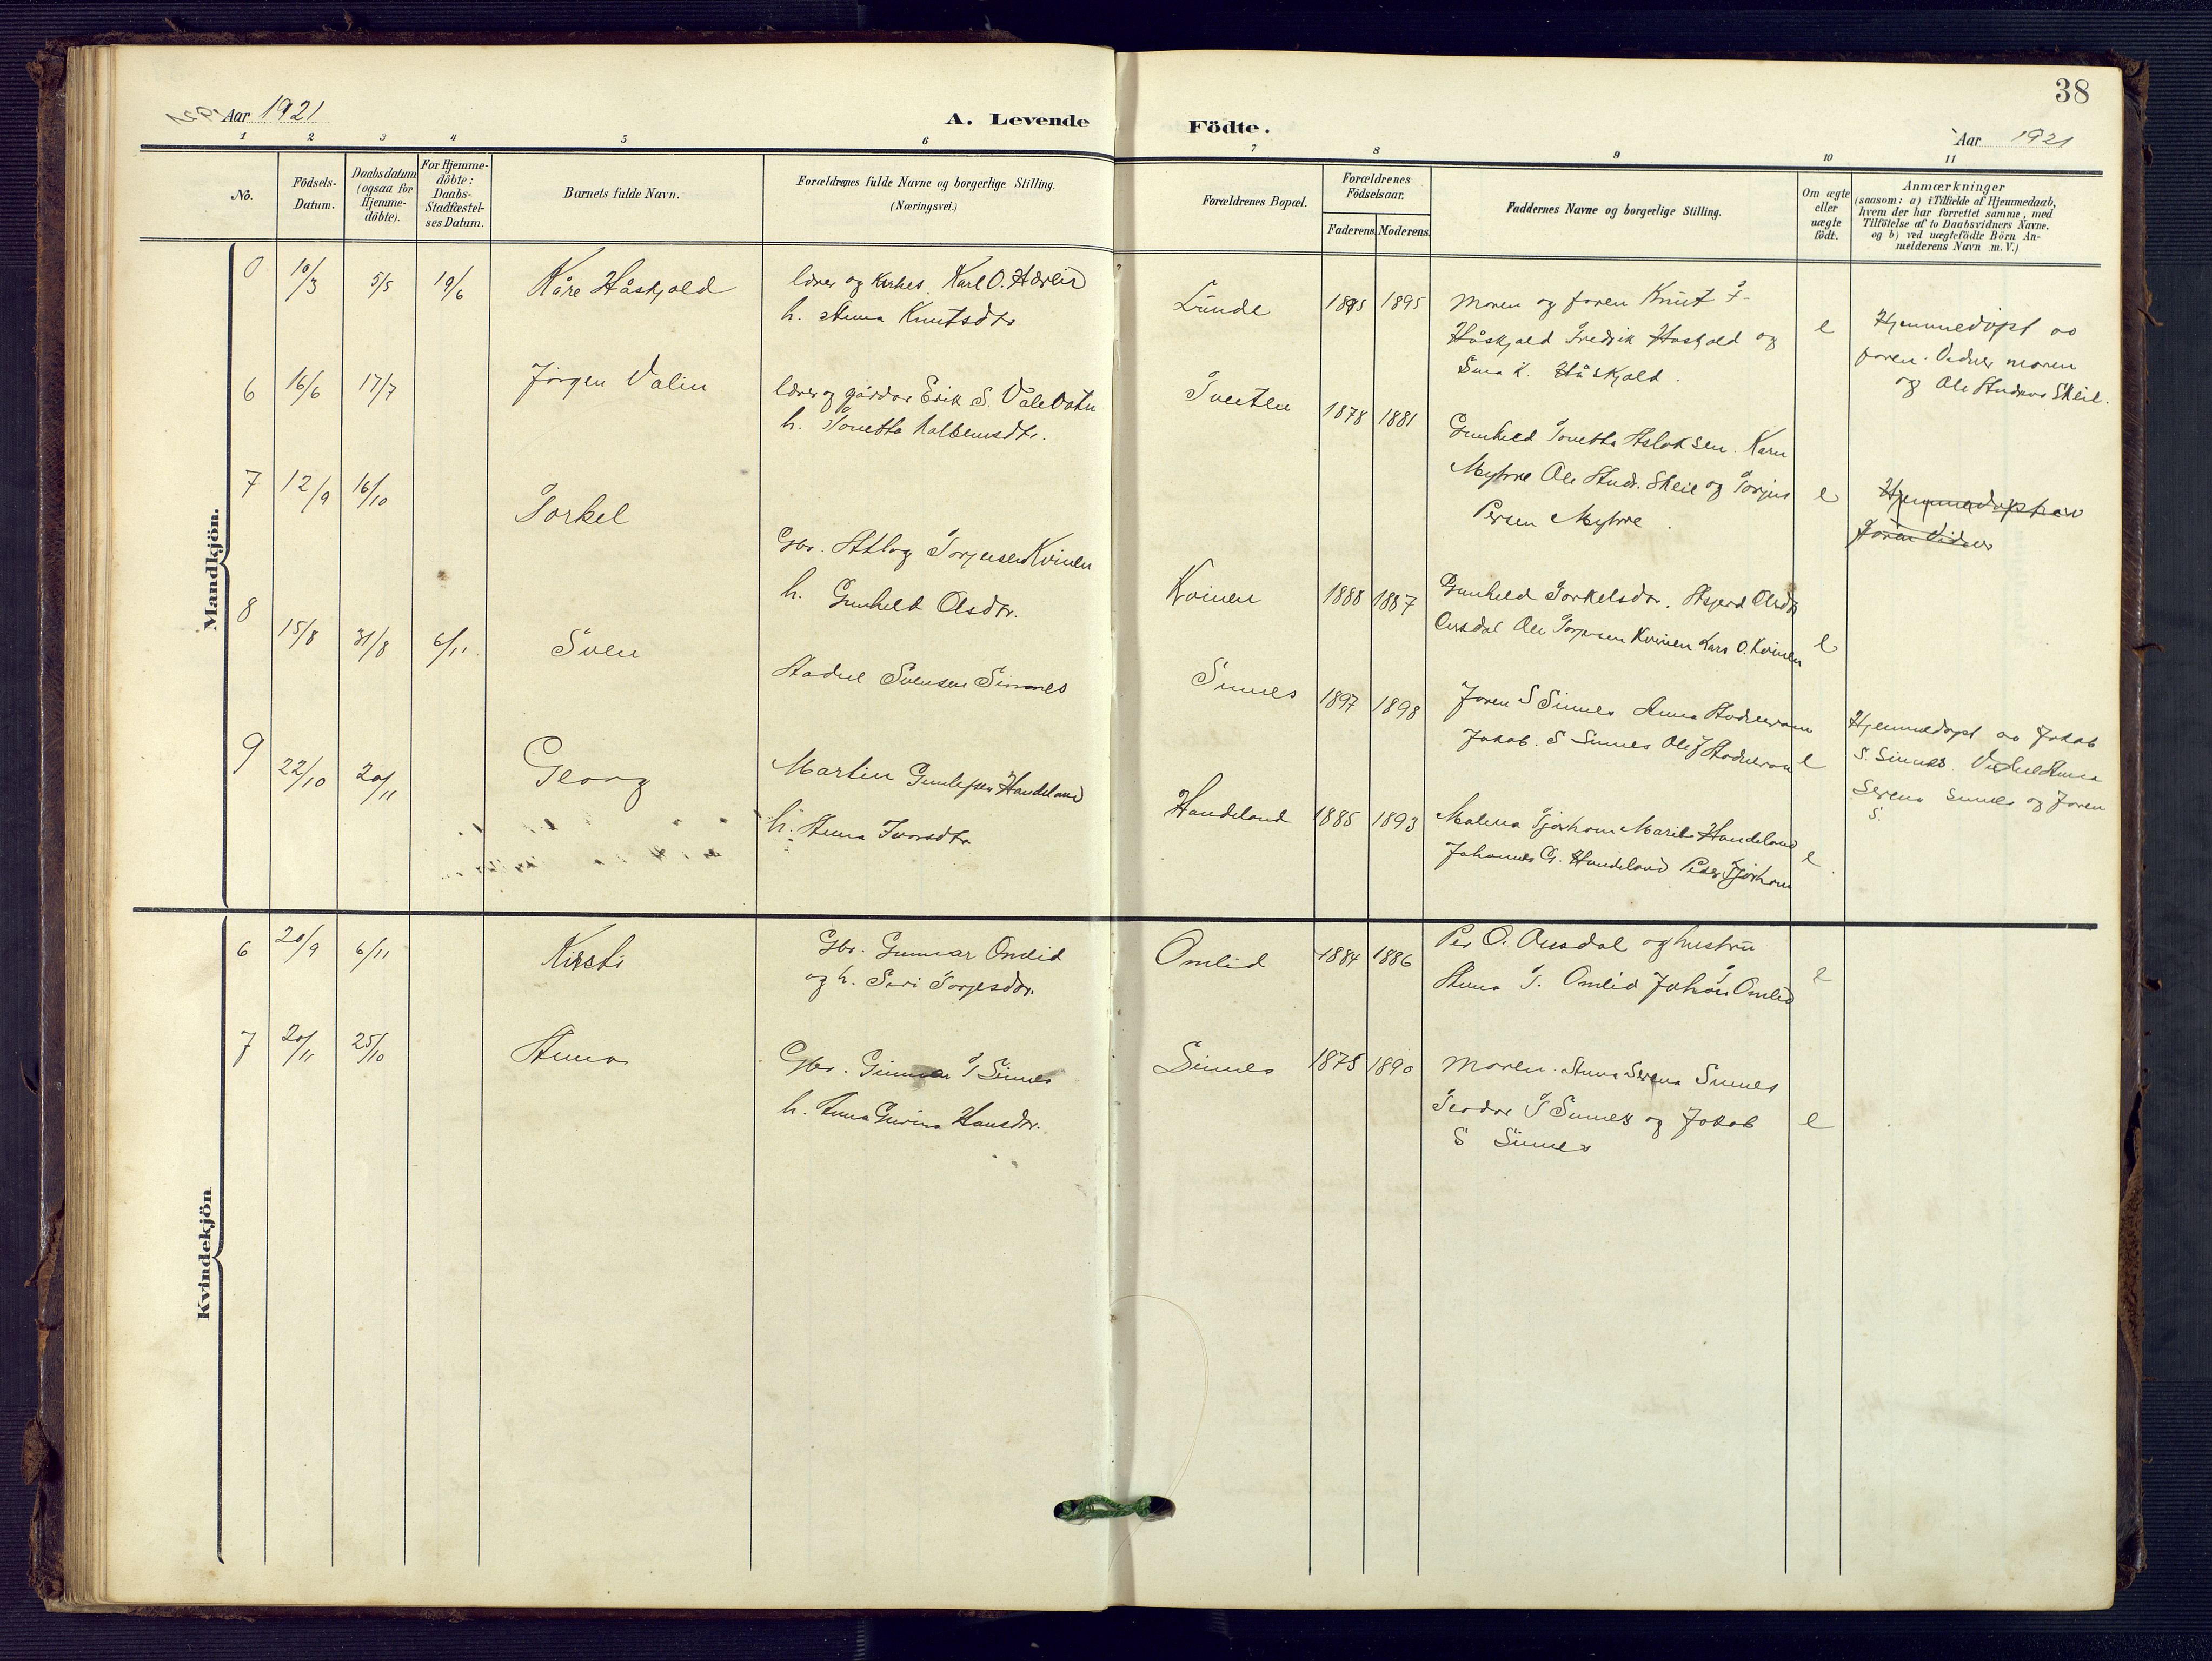 38
Aar 1921
A. Levende
Födte.
Aar 1921
1 2 3 4 5 6 7 8 9 10 11
No.
Födsels-
Datum.
Daabsdatum
(ogsaa for
Hjemme-
döbte).
For Hjemme-
döbte:
Daabs-
Stadfæstel-
ses Datum.
Barnets fulde Navn.
Forældrenes fulde Navne og borgerlige Stilling.
(Næringsvei.)
Forældrenes Bopæl.
Forældrenes
Födselsaar.
Faderens Moderens
Faddernes Navne og borgerlige Stilling.
Om ægte
eller
uægte
födt.
Anmærkninger
(saasom: a) i Tilfælde af Hjemmedaab,
hvem der har forrettet samme, med
Tilföielse af to Daabsvidners Navne.
og b) ved uægtefödte Börn An-
melderens Navn m. V.)
Mandkjön.
10/3 5/5 19/6 Kåre Håskjold
lærer og Karl O.
h. Anna Knutsdtr
Lunde 1895 1895
moren og faren Knut T-
Håskjold Fredrik Haskjold og
K. Håskjold.
e
Hjemmedöpt av
faren. Vidner moren
og Ole Skeie.
6 16/6 17/7 Jörgen Valin
lærer og Erik S.
h. Tonette
1878 1881
Gunhild Tonette Aslaksen. Karen
Myhre Ole Andr. Skeie og Torjus
Persen Myhre.
e
Hjemmedöpt av
faren Vidner
7 12/9 16/10 Torkel
Gbr. Torjusen Kvinen
h. Gunhild Olsdtr.
Kvinen 1888 1887
Gunhild Torkelsdtr. Olsdtr
Ousdal Ole Torjusen Kvinen Lars O. Kvinen
e
8 15/8 31/8 6/11 Sven
Svensen Sinnes
Sinnes 1897 1898
Joren S Sinnes Anna
Jakob. S Sinnes
e
Hjemmedöpt av Jakob
S. Sinnes. Anna
Serena Sinnes og Joren
S.
9 22/10 20/11 Georg
Martin Gunlefsen Handeland
h. Anna Ivarsdtr
Handeland 1885 1893
Malena Tjörhom Marit Handeland
Johannes G. Handeland Peder Tjörhom
e
Kvindekjön
6 20/9 6/11 Kirsti
Gbr. Gunnar Omlid
og h. Siri Torjesdtr.
Omlid 1884 1886
Per O. Ousdal og hustru
Anna T. Omlid Johan Omlid
e
7 20/11 25/10 Anna
Gbr. Gunnar T Sinnes
h. Anna Hansdtr.
Sinnes 1875 1890
Moren. Anna Serena Sinnes
Teodor T Sinnes og Jakob
S Sinnes
e